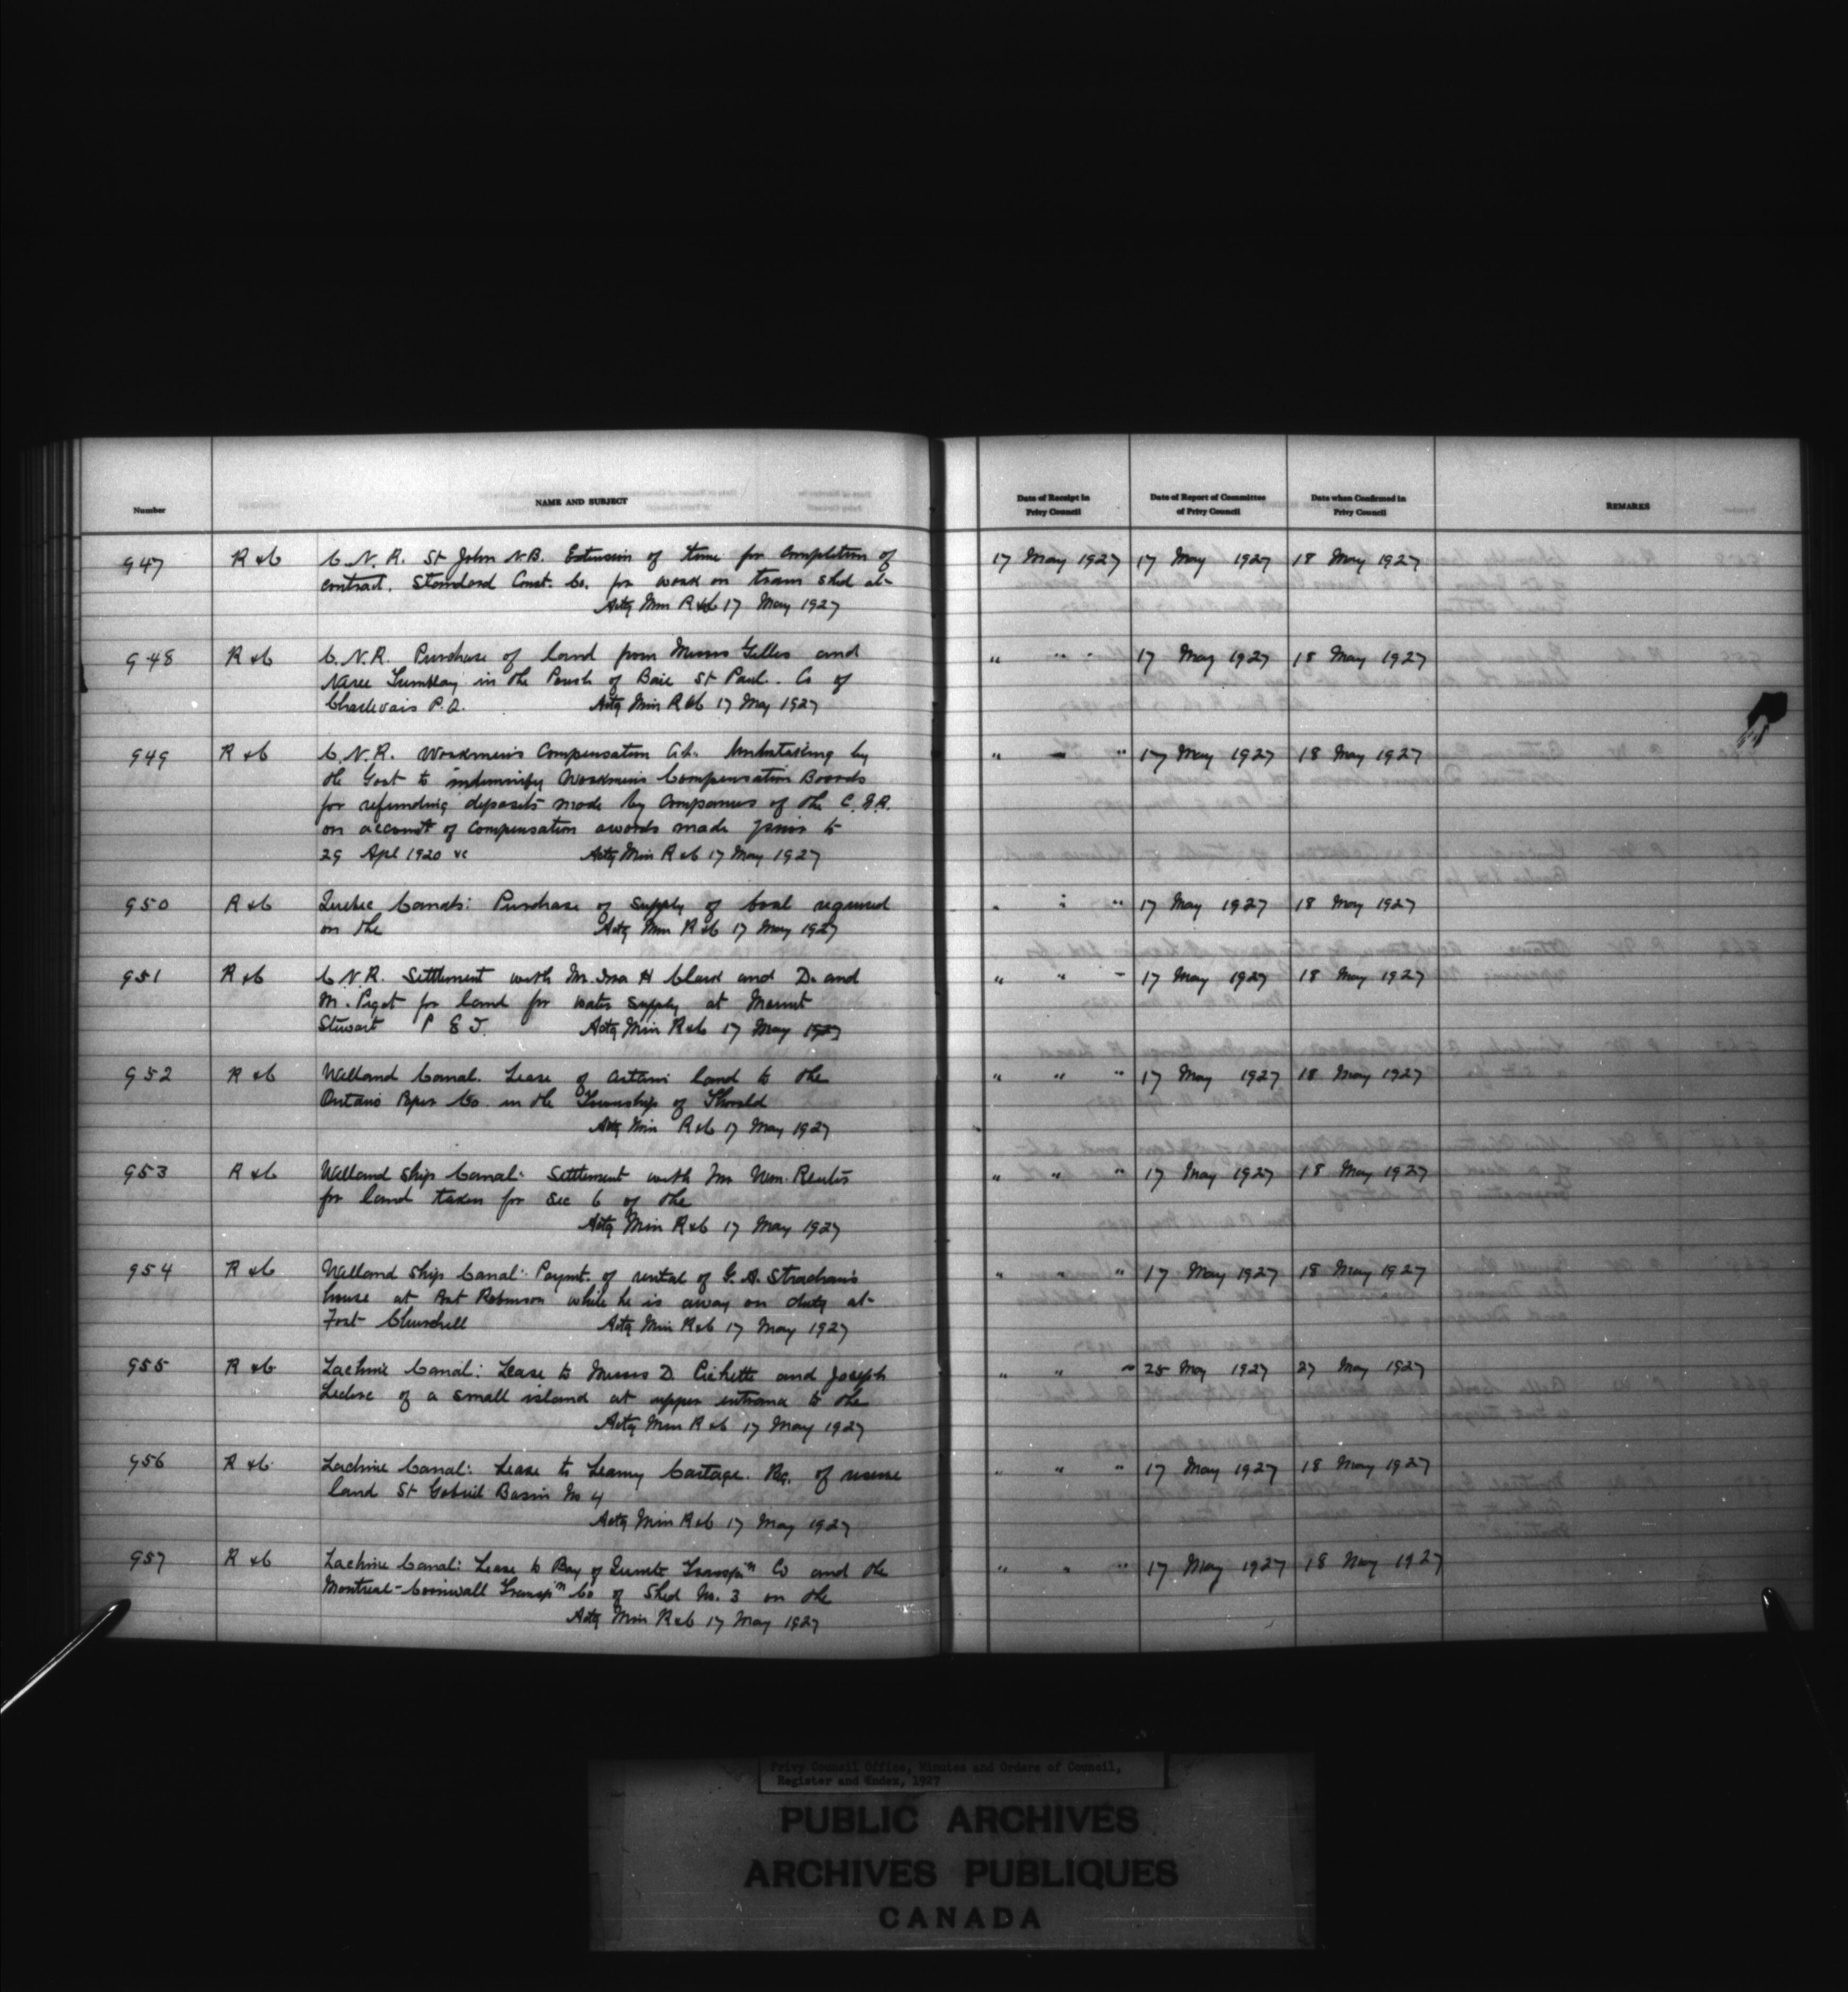 Number
NAME AND SUBJECT
Date of Receipt in Privy Council
Date of Report of Committee of Privy Council
Date when Confirmed in Privy Council
REMARKS
947 R & C C. N. R. St John N.B. Extension of time for completion of 17 May 1927 17 May 1927 18 May 1927
contract. Standard Const. Co. for work on train shed at
Actg Min R & C 17 May 1927
948 R & C C. N. R. Purchase of land from Messrs Gilles and " " " 17 May 1927 18 May 1927
Tremblay in the Parish of Baie St Paul. Co of
Charlevoix P.Q. Actg Min R & C 17 May 1927
949 R & C C. N. R. Workmen's Compensation Act. Undertaking by " " " 17 May 1927 18 May 1927
the Govt to indemnify Workmen's Compensation Boards
for refunding deposits made by Companies of the C. G. R.
on account of compensation awards made prior to
29 Apl 1920 &c Actg Min R & C 17 May 1927
950 R & C Quebec Canals: Purchase of supply of Coal required " " " 17 May 1927 18 May 1927
on the Actg Min R & C 17 May 1927
951 R & C C. N. R. Settlement with Mr. Ira H Clark and D. and " " " 17 May 1927 18 May 1927
M. Pigot for land for water supply at Mount
Stewart P E I. Actg Min R & C 17 May 1927
952 R & C Welland Canal. Lease of certain land to the " " " 17 May 1927 18 May 1927
Ontario Paper Co. in the Township of Thorold
Actg Min R & C 17 May 1927
953 R & C Welland Ship Canal: Settlement with Mr Wm. Reuter " " " 17 May 1927 18 May 1927
for land taken for Sec 6 of the
Actg Min R & C 17 May 1927
954 R & C Welland Ship Canal: Paymt. of rental of G. A. Strachan's " " " 17 May 1927 18 May 1927
house at Port Robinson while he is away on duty at
Fort Churchill Actg Min R & C 17 May 1927
955 R & C Lachine Canal: Lease to Messrs D. Pichette and Joseph " " " 25 May 1927 27 May 1927
Leclerc of a small island at upper entrance to the
Actg Min R & C 17 May 1927
956 R & C Lachine Canal: Lease to Leamy Cartage. Reg. of reserve " " " 17 May 1927 18 May 1927
land St Gabriel Basin No 4
Actg Min R & C 17 May 1927
957 R & C Lachine Canal: Lease to Bay of Quinte Transpn Co and the " " " 17 May 1927 18 May 1927
Montreal-Cornwall Transpn Co of Shed No. 3 on the
Actg Min R & C 17 May 1927
Privy Council Office, Minutes and Orders of Council,
Register and Index, 1927
PUBLIC ARCHIVES
ARCHIVES PUBLIQUES
CANADA